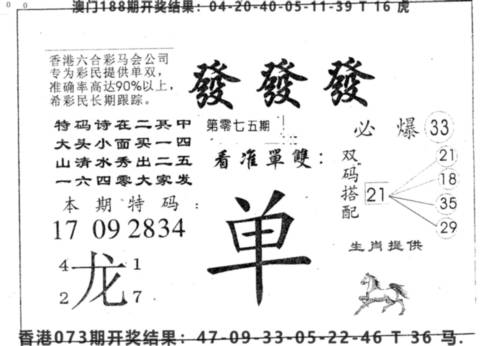 澳门188期开奖结果：04-20-40-05-11-39 T 16 虎
香港六合彩马会公司
专为彩民提供单双，
准确率高达90%以上，
希彩民长期跟踪。
發 發 發
特码诗在二其中
大头小面买一四
山清水秀出二五
一六四零大家发
第零七五期
看准單雙：
单
必爆 33
双码搭配
21
21
18
35
29
本期特码：
17 09 28 34
4 1
龙
2 7
生肖提供
香港073期开奖结果：47-09-33-05-22-46 T 36 马.